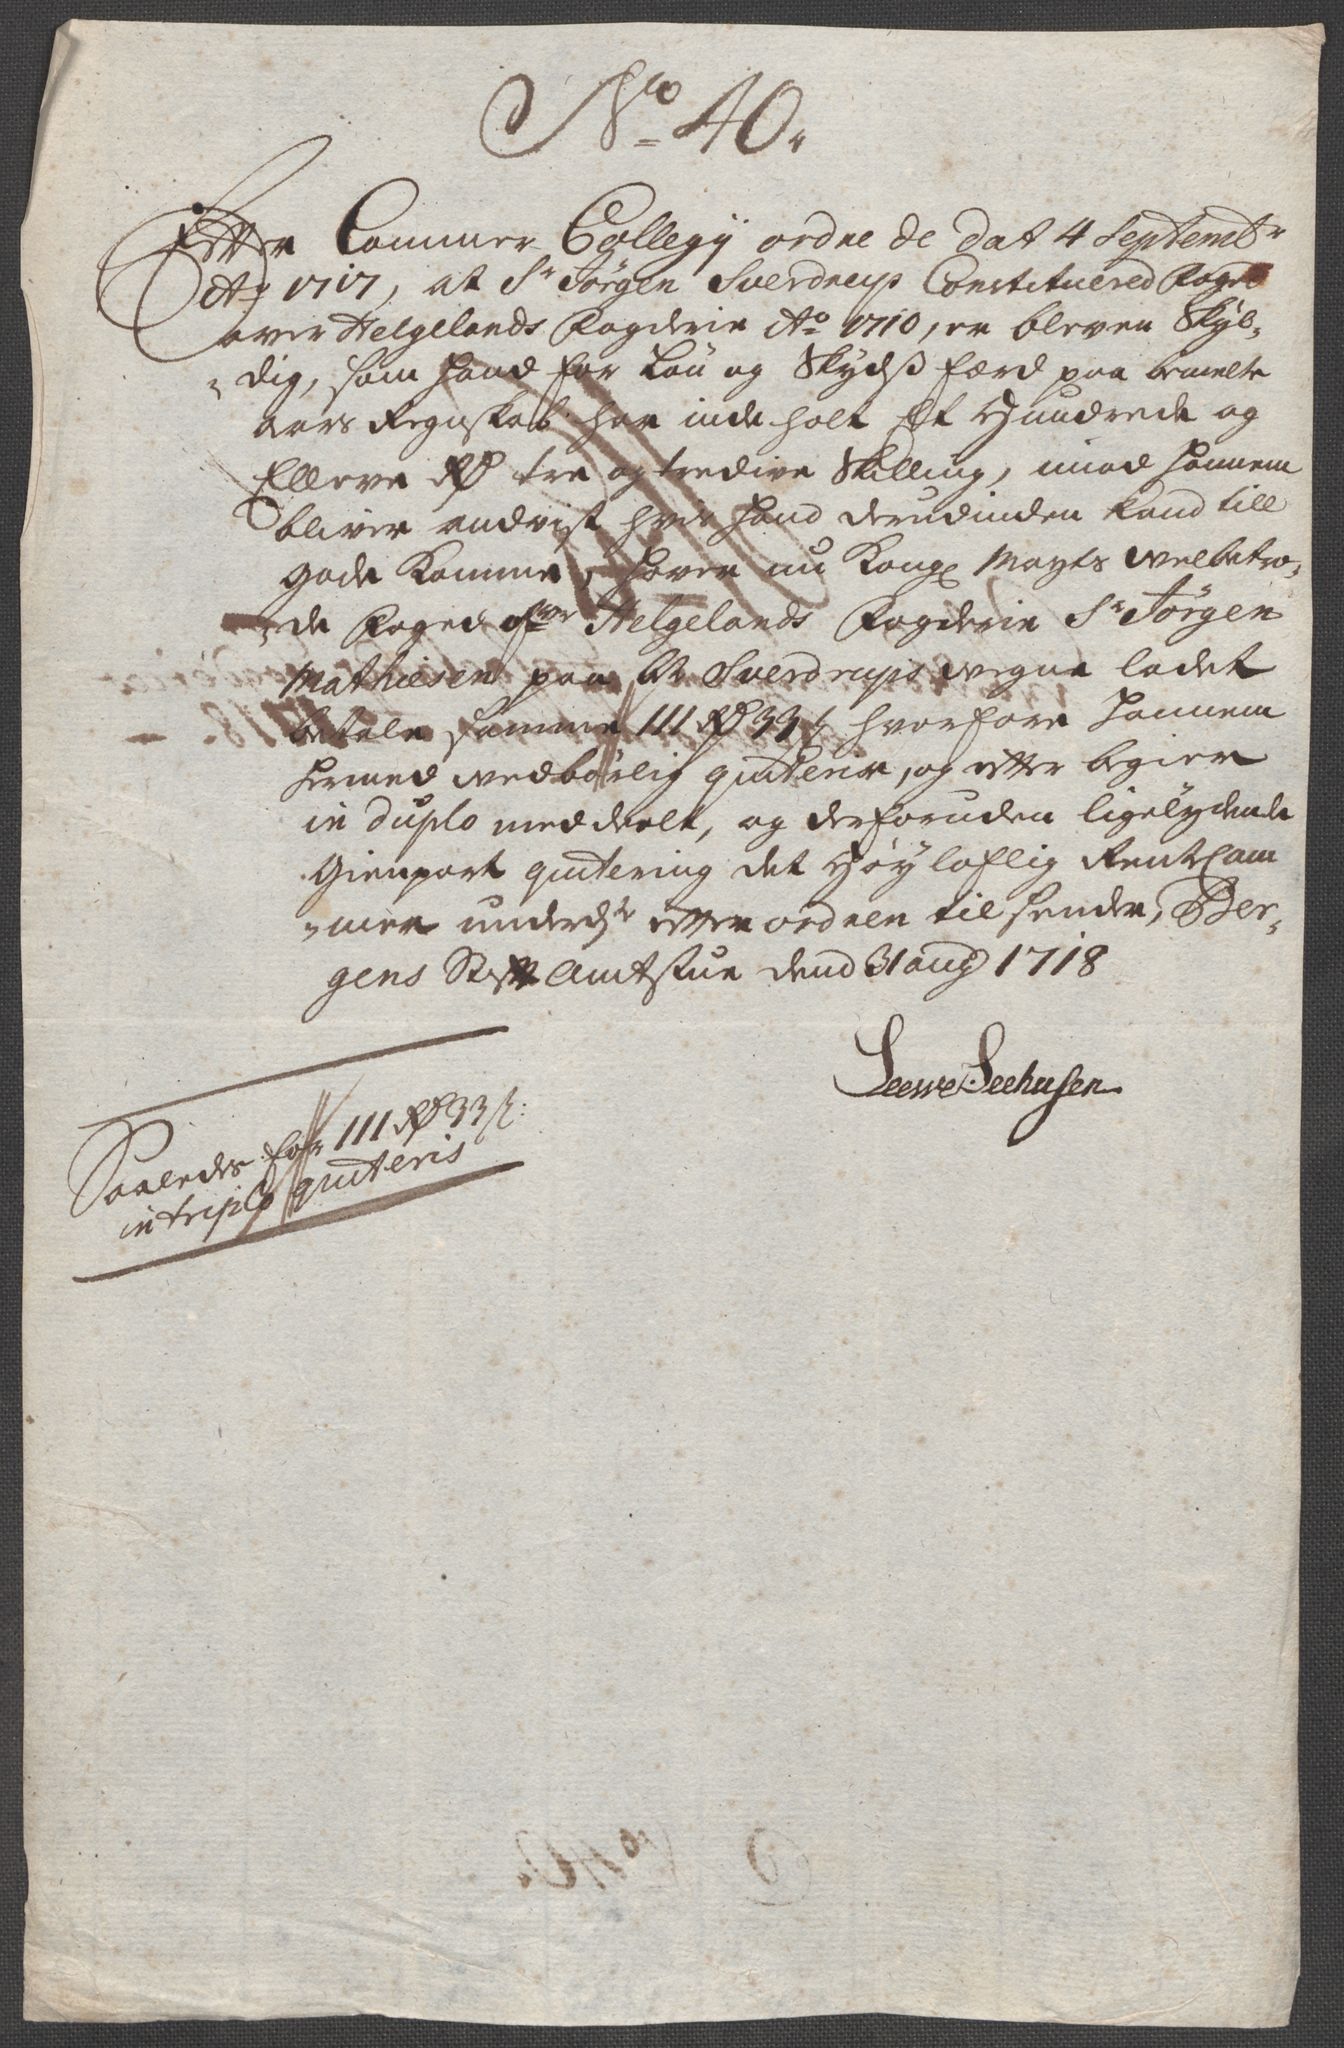 No 40.
Efter Cammer Collegij ordre de dat 4 Septembr
Ao 1717, at Sr Jørgen Sverdrup Constituered Foged
over Helgelands Fogderie Ao 1710, er bleven Skyl-
dig, som hand for Løn og Skydsß færd paa bemelte
aars Regnskab har inde holt Et Hundrede og
Elleve Rd tre og tredive Skilling, imod hannem
bliver andvist hvis hand derudinden kand till
gode komme, haver nu Kongl Mayts welbetro-
de Foged over Helgelands Fogderie Sr Jørgen
Mathiesen paa Sverdrups wegne ladet
betale samme 111 Rd 33 s hvorfore hannem
hermed wedbørlig quiteris, og efter begier
in duplo meddeelt, og derforuden ligelydende
Gienpart quitering det Høyloflig RentCam
mer underd efter ordren tilsender, Ber-
gens Stift Amtstue dend 31 aug 1718
Seewe Seehusen
Saaledes for 111 Rd 33 s:
in triplo quiteris